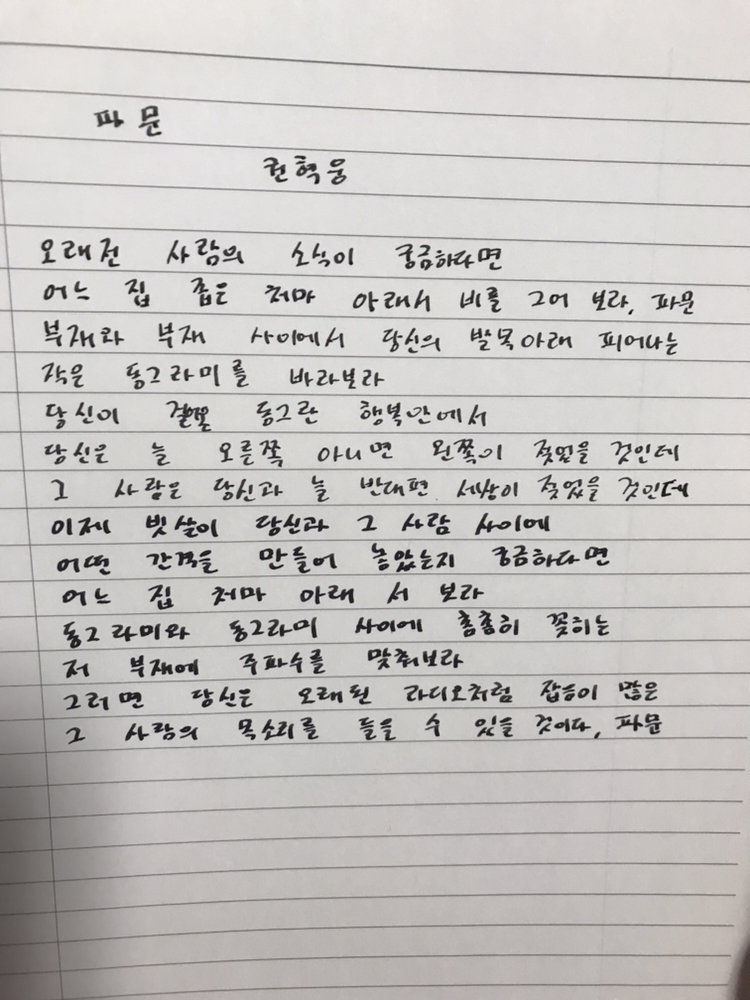 파문
권혁웅
오래전 사람의 소식이 궁금하다면
어느 집 좁은 처마 아래서 비를 그어 보라, 파문
부재와 부재 사이에서 당신의 발목아래 피어나는
작은 동그라미를 바라보라
당신이 동그란 행복안에서
당신은 늘 오른쪽 아니면 왼쪽이 젖었을 것인데
그 사람은 당신과 늘 반대편 세상이 젖었을 것인데
이제 빗살이 당신과 그 사람 사이에
어떤 간격을 만들어 놓았는지 궁금하다면
어느 집 처마 아래 서 보라
동그라미와 동그라미 사이에 촘촘히 꽂히는
저 부재에 주파수를 맞춰보라
그러면 당신은 오래된 라디오처럼 잡음이 많은
그 사람의 목소리를 들을 수 있을 것이다, 파문